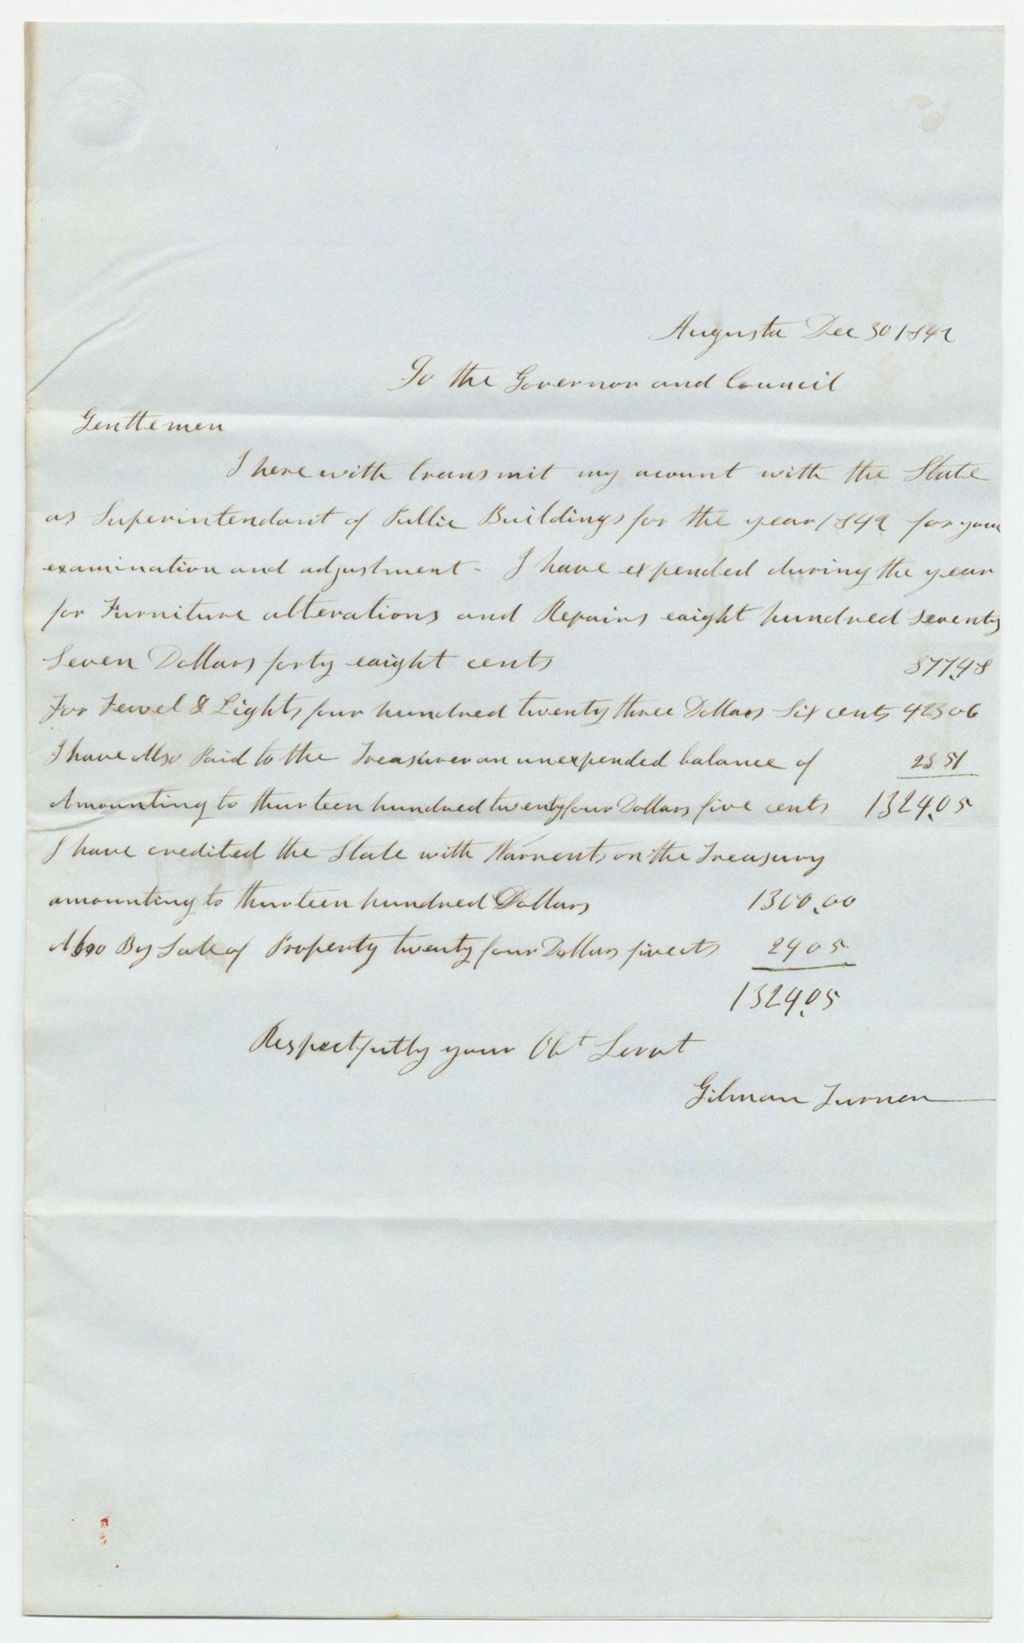 Augusta Dec 30 1842
To the Governor and Council
Genttemen
I here with transmit my acount with the State
as Superintendant of Public Buildings for the year 1842 for your
examination and adjustment - I have expended during the year
for Furniture alterations and Repairs eaight hundred seventy
Seven Dollars forty eaight cents 877.48
For Fewel & Lights four hundred twenty three Dollars Six cents 423 06
I have Also Paid to the Treasurer an unexpended balance of 23 51
Amounting to thirteen hundred twenty four Dollars five cents 1324.05
I have credited the State with Warrents on the Treasury
amounting to thirteen hundred Dollars 1300.00
Also By Sale of Property twenty four Dollars five cts 24 05
1324.05
Respectfutly your Obt Servt
Gilman Turner